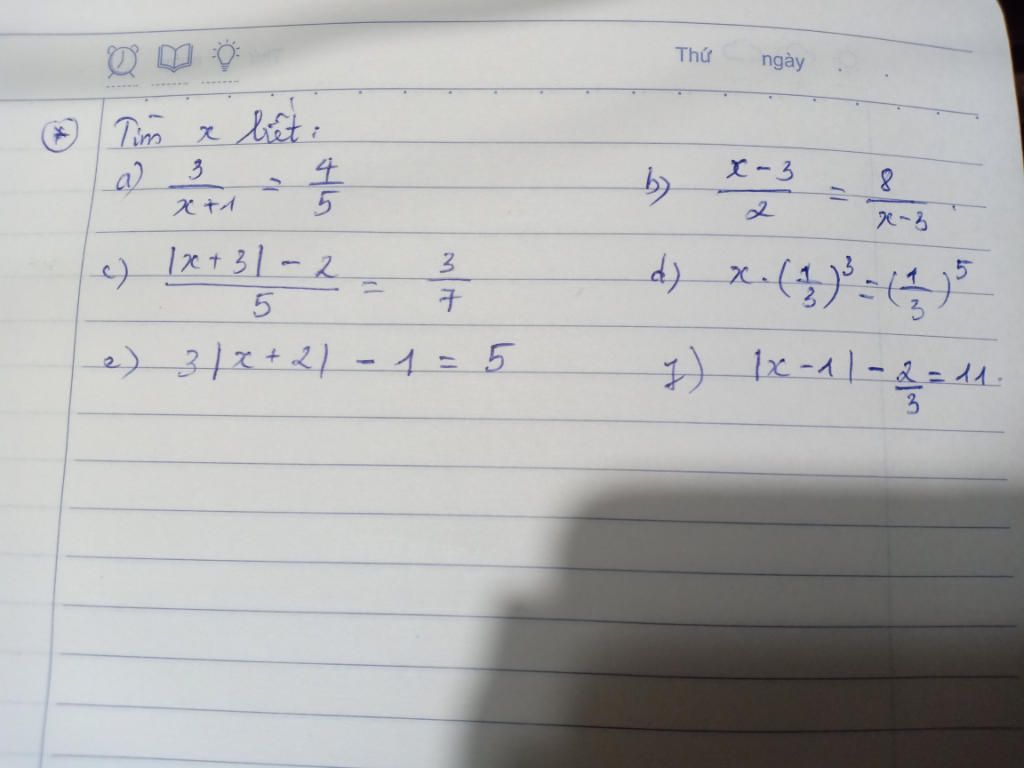 Thứ ngày
* Tìm x biết:
a) 3/(x+1) = 4/5 b) (x-3)/2 = 8/(x-3).
c) (|x+3| - 2)/5 = 3/7 d) x·(1/3)^3 = (1/3)^5
e) 3|x+2| - 1 = 5 f) |x-1| - 2/3 = 11.